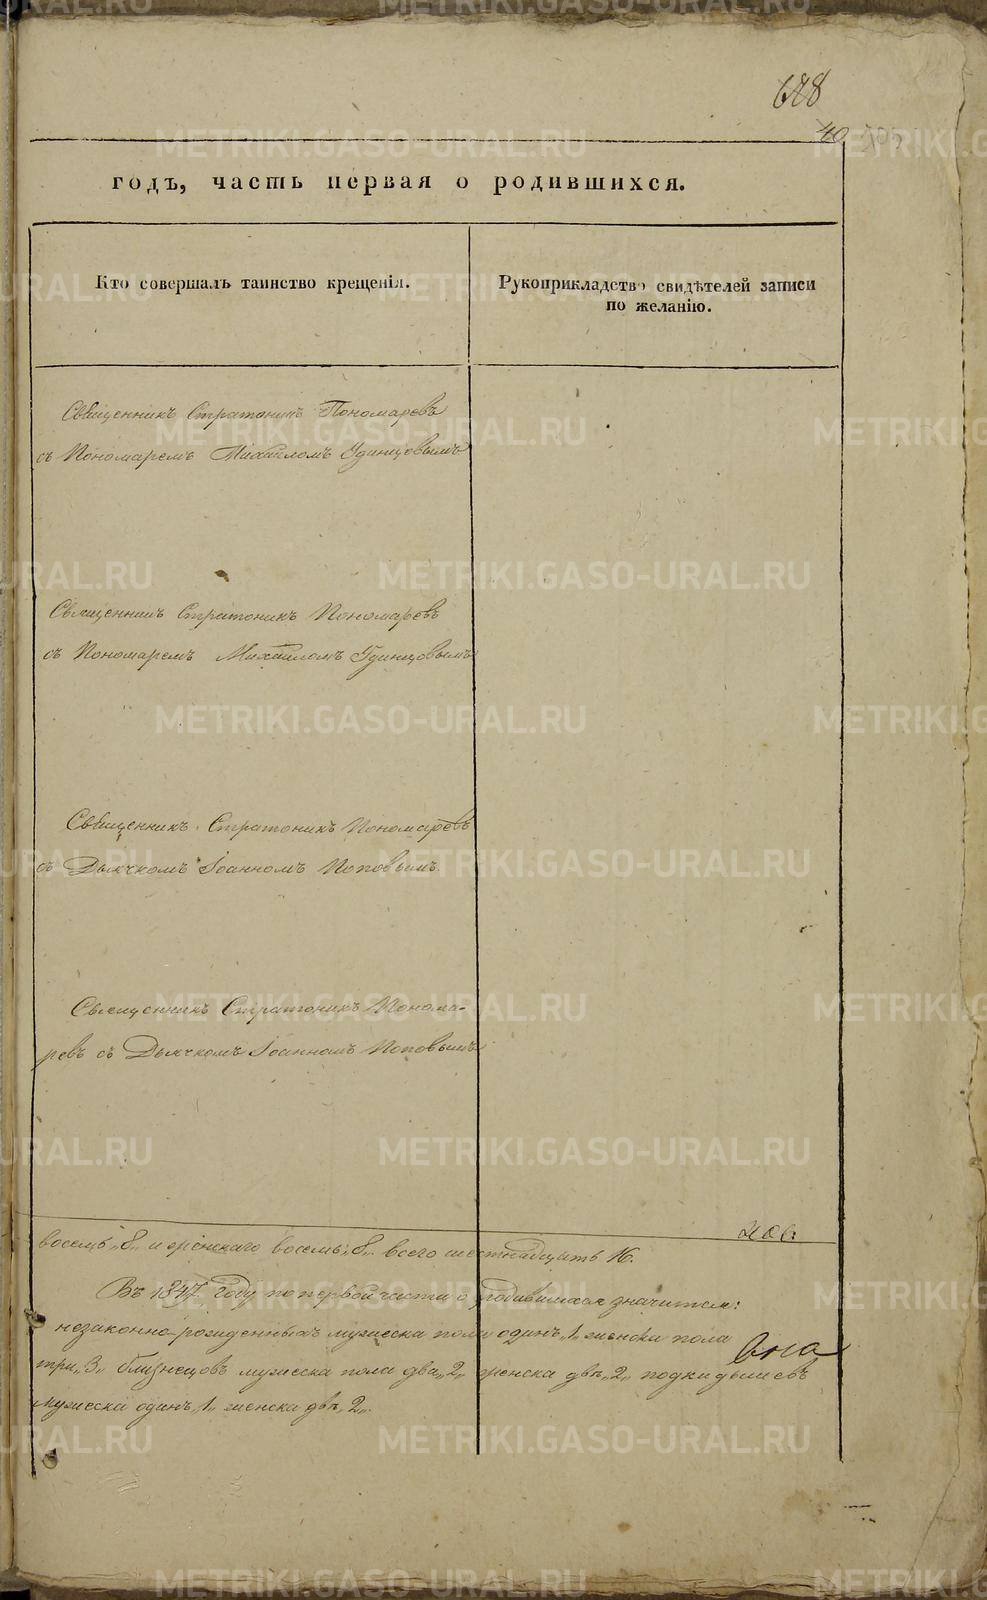 688
40 705
годъ, часть первая о родившихся.
Кто совершалъ таинство крещенія.
Рукоприкладство свидѣтелей записи
по желанію.
Священникъ Стратоникъ Пономаревъ
съ Пономаремъ Михаиломъ Удинцовымъ
Священникъ Стратоникъ Пономаревъ
съ Пономаремъ Михаиломъ Удинцовымъ
Священникъ Стратоникъ Пономаревъ
съ Дьячкомъ Іоанномъ Поповымъ.
Священникъ Стратоникъ Понома-
ревъ съ Дьячкомъ Іоанномъ Поповымъ
восемь „8„ и женскаго восемь „8„ всего шестнадцать 16.
Въ 1847 году по первой части о родившихся значится:
незаконно-рожденныхъ мужеска пола одинъ „1„ женска пола
три „3„ близнецовъ мужеска пола два „2„ женска двѣ „2„ подкидышевъ
мужеска одинъ „1„ женска двѣ „2„.
METRIKI.GASO-URAL.RU